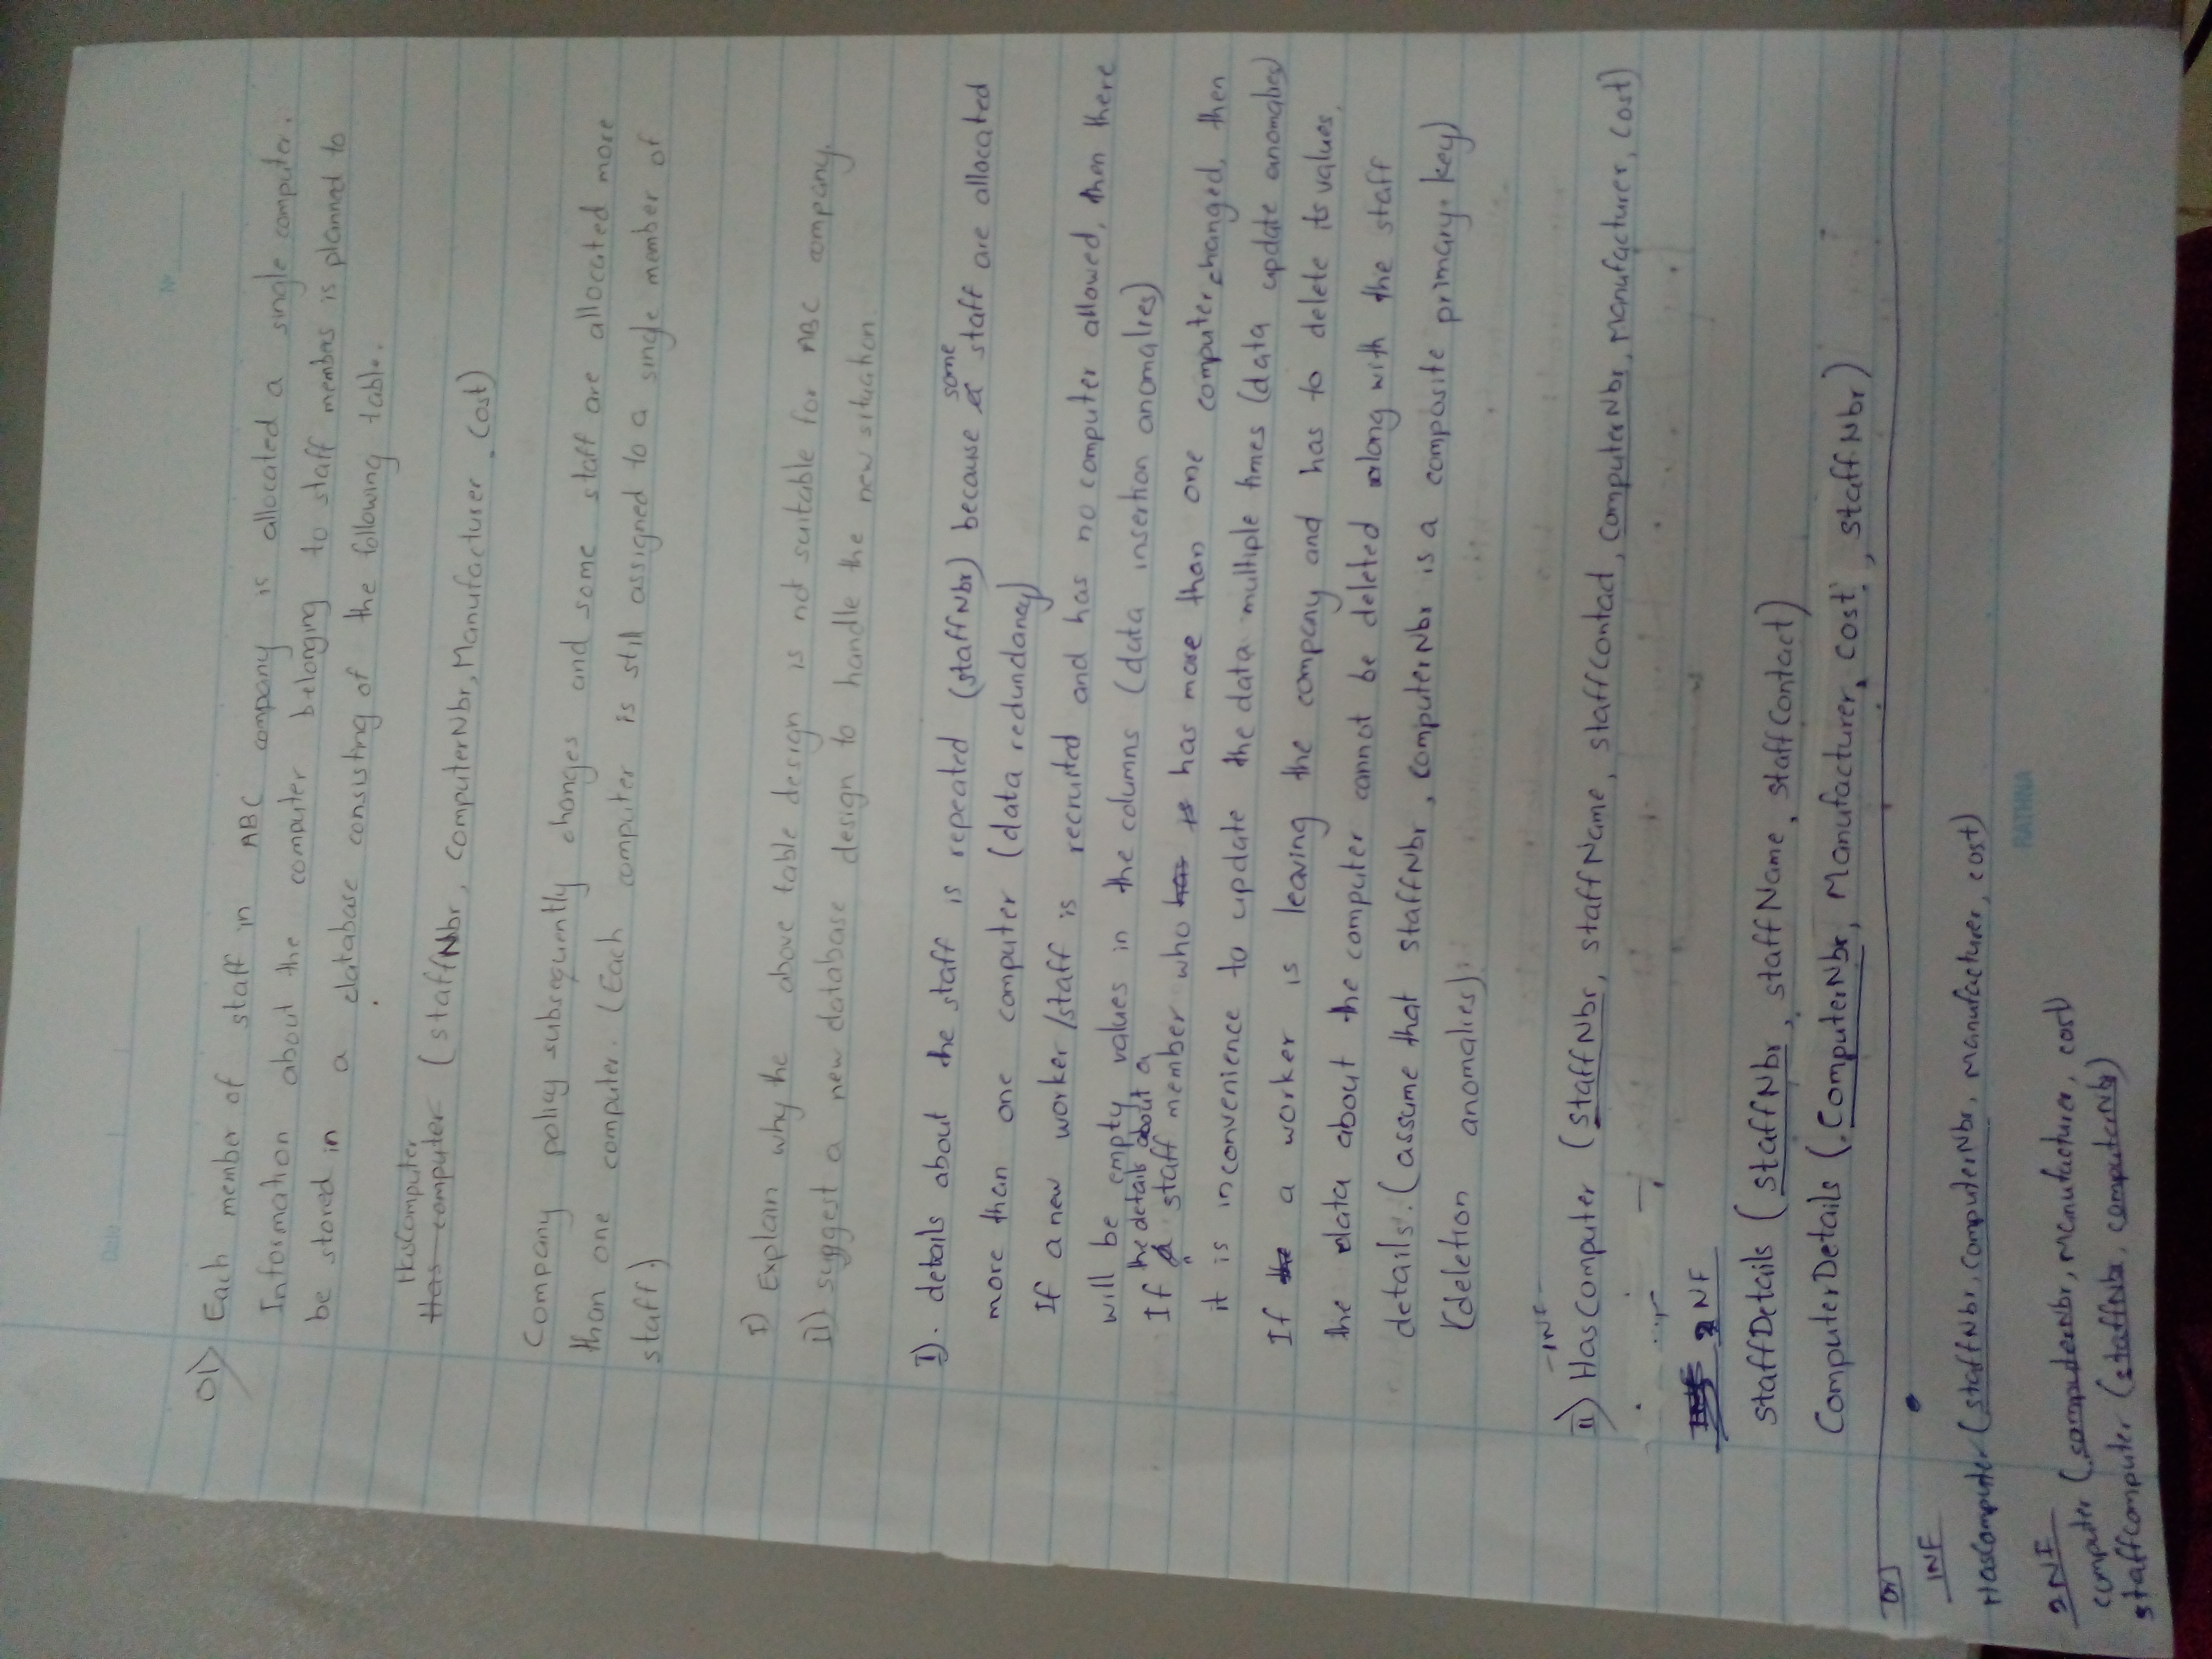 01) Each member of staff in ABC company is allocated a single computer.
Information about the computer belonging to staff members is planned to
be stored in a database consisting of the following table.
HasComputer
Has computer (staffNbr, computerNbr, Manufacturer, Cost)
Company policy subsequently changes and some staff are allocated more
than one computer. (Each computer is still assigned to a single member of
staff.)
I) Explain why the above table design is not suitable for ABC company.
II) suggest a new database design to handle the new situation.
I). details about the staff is repeated (staffNbr) because some staff are allocated
more than one computer (data redundancy)
If a new worker/staff is recruited and has no computer allowed, then there
will be empty values in the columns (data insertion anomalies)
If the details about a staff member who has more than one computer changed, then
it is inconvenience to update the data multiple times (data update anomalies)
If the a worker is leaving the company and has to delete its values,
the data about the computer cannot be deleted along with the staff
details. (assume that staffNbr, computerNbr is a composite primary key)
(deletion anomalies)
-1NF-
ii) HasComputer (staffNbr, staffName, staffContact, computerNbr, Manufacturer, Cost)
2NF
staffDetails (staffNbr, staffName, staffContact)
ComputerDetails (ComputerNbr, Manufacturer, Cost, staffNbr)
1NF
HasComputer (staffNbr, computerNbr, manufacturer, cost)
2NF
computer (computerNbr, manufacturer, cost)
staffcomputer (staffNbr, computerNbr)
RATHNA